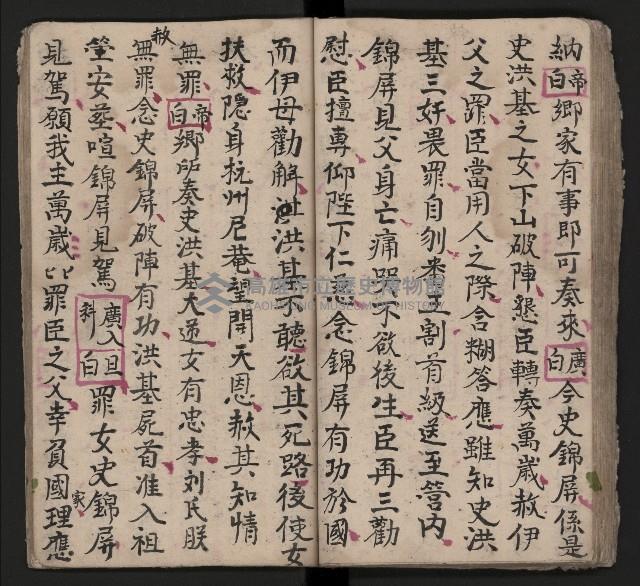 納帝白卿家有事即可奏來廣白今史錦屏係是
史洪基之女下山破陣懇臣轉奏萬歲赦伊
父之罪臣當用人之際含糊答應雖知史洪
基三奸畏罪自刎 割首級送至營內
錦屏見父身亡痛哭不欲後生臣再三勸
慰臣擅專仰陛下仁慈念錦屏有功於國
而伊母勸解 洪基不聽欲其死路後使女
扶救隱身杭州尼菴望開天恩赦其知情
無罪帝白卿所奏史洪基大逆女有忠孝刘氏朕
赦無罪念史錦屏破陣有功洪基屍首准入祖
塋安葬喧錦屏見駕廣入旦科白罪女史錦屏
見駕願我主萬歲 罪臣之父辜負國家理應
高雄市立歷史博物館
KAOHSIUNG MUSEUM OF HISTORY